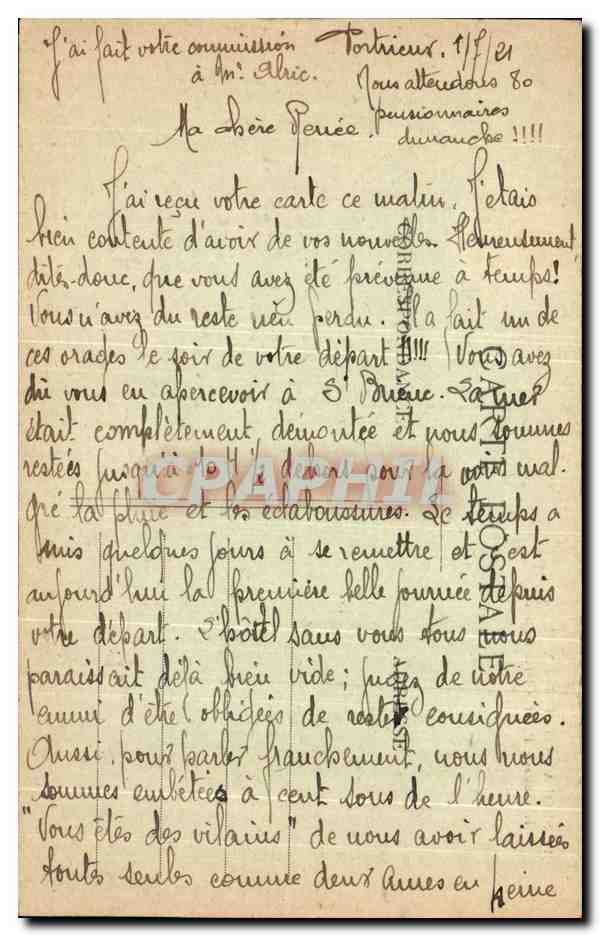 J'ai fait votre commission
à Mr Alric.
Portrieux. 1/7/21
Nous attendons 80
pensionnaires
dimanche !!!!
Ma chère Renée.
J'ai reçu votre carte ce matin. J'étais
bien contente d'avoir de vos nouvelles. Heureusement
dites-donc, que vous avez été prévenue à temps!
Vous n'avez du reste rien perdu. Il a fait un de
ces orages le soir de votre départ !!!!! Vous avez
dû vous en apercevoir à St Brieuc. La mer
était complètement démontée et nous sommes
restées jusqu'à 10 h ½ dehors pour la voir mal-
gré la pluie et les éclaboussures. Le temps a
mis quelques jours à se remettre et c'est
aujourd'hui la première belle journée depuis
votre départ. L'hôtel sans vous tous nous
paraissait déjà bien vide; jugez de notre
ennui d'être obligées de rester consignées.
Aussi, pour parler franchement, nous nous
sommes embêtées à cent sous de l'heure.
"Vous êtes des vilains" de nous avoir laissées
toutes seules comme deux âmes en peine
CARTE POSTALE
CORRESPONDANCE
ADRESSE
CPAPHIL